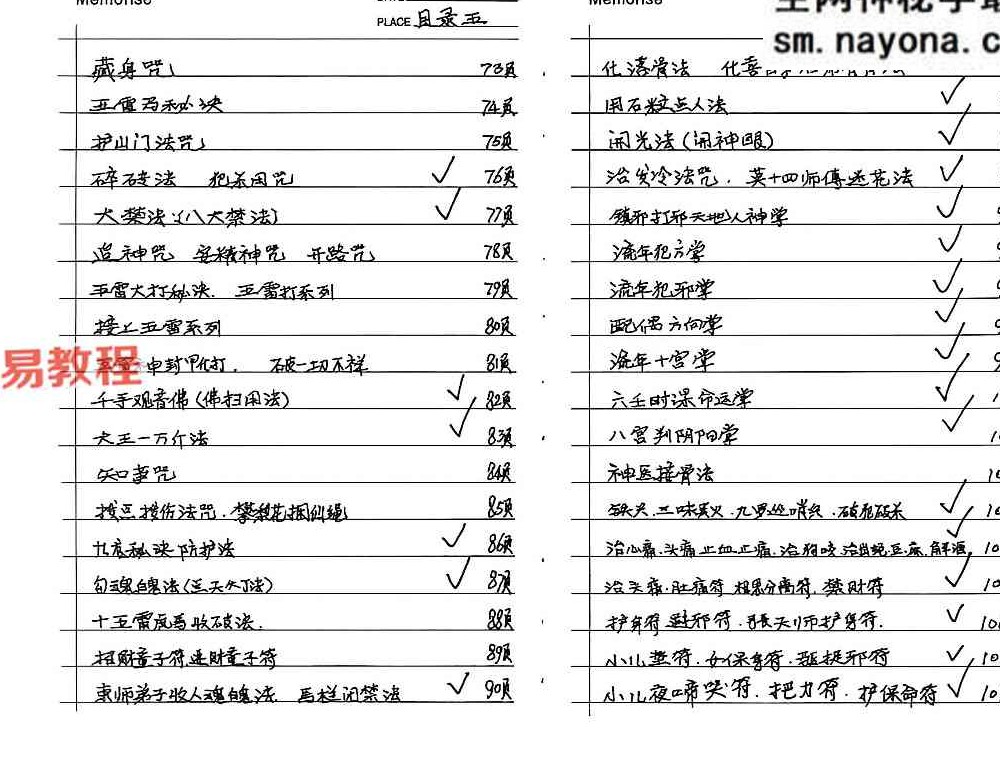 Memorise
PLACE 目录五
藏身咒 73页
五雷马秘决 74页
护山门法咒 75页
碎砖法 犯杀用咒 76页
大禁法(八大禁法) 77页
追神咒 安精神咒 开路咒 78页
五雷大打秘决. 五雷打系列 79页
接上五雷系列 80页
破一切不祥 81页
千手观音佛(佛扫用法) 82页
大王一万斤法 83页
知事咒 84页
85页
九应秘决防护法 86页
勾魂魄法(三天火丁法) 87页
十五雷成马收破法. 88页
招财童子符 进财童子符 89页
束师弟子收人魂魄法 马栏闭禁法 90页
易教程
Memorise
全网神秘学最
sm.nayona.c
化骨法
用石粒点人法
开光法(开神眼)
治发冷法咒. 莫十四师傅送花法
镇邪打邪天地人神掌
流年犯方掌
流年犯邪掌
配偶方向掌
流年十宫掌
六壬时课命运掌
八宫判阴阳掌
神医接骨法
铁尖. 三味真火. 九罗
治心痛. 头痛 止血止痛. 治狗咬
治头痛. 肚痛符. 相思分离符. 禁财符
护身符 退邪符. 张天师护身符.
小儿垫符. 女保身符. 驱捉邪符
小儿夜啼哭符. 把力符. 护保命符